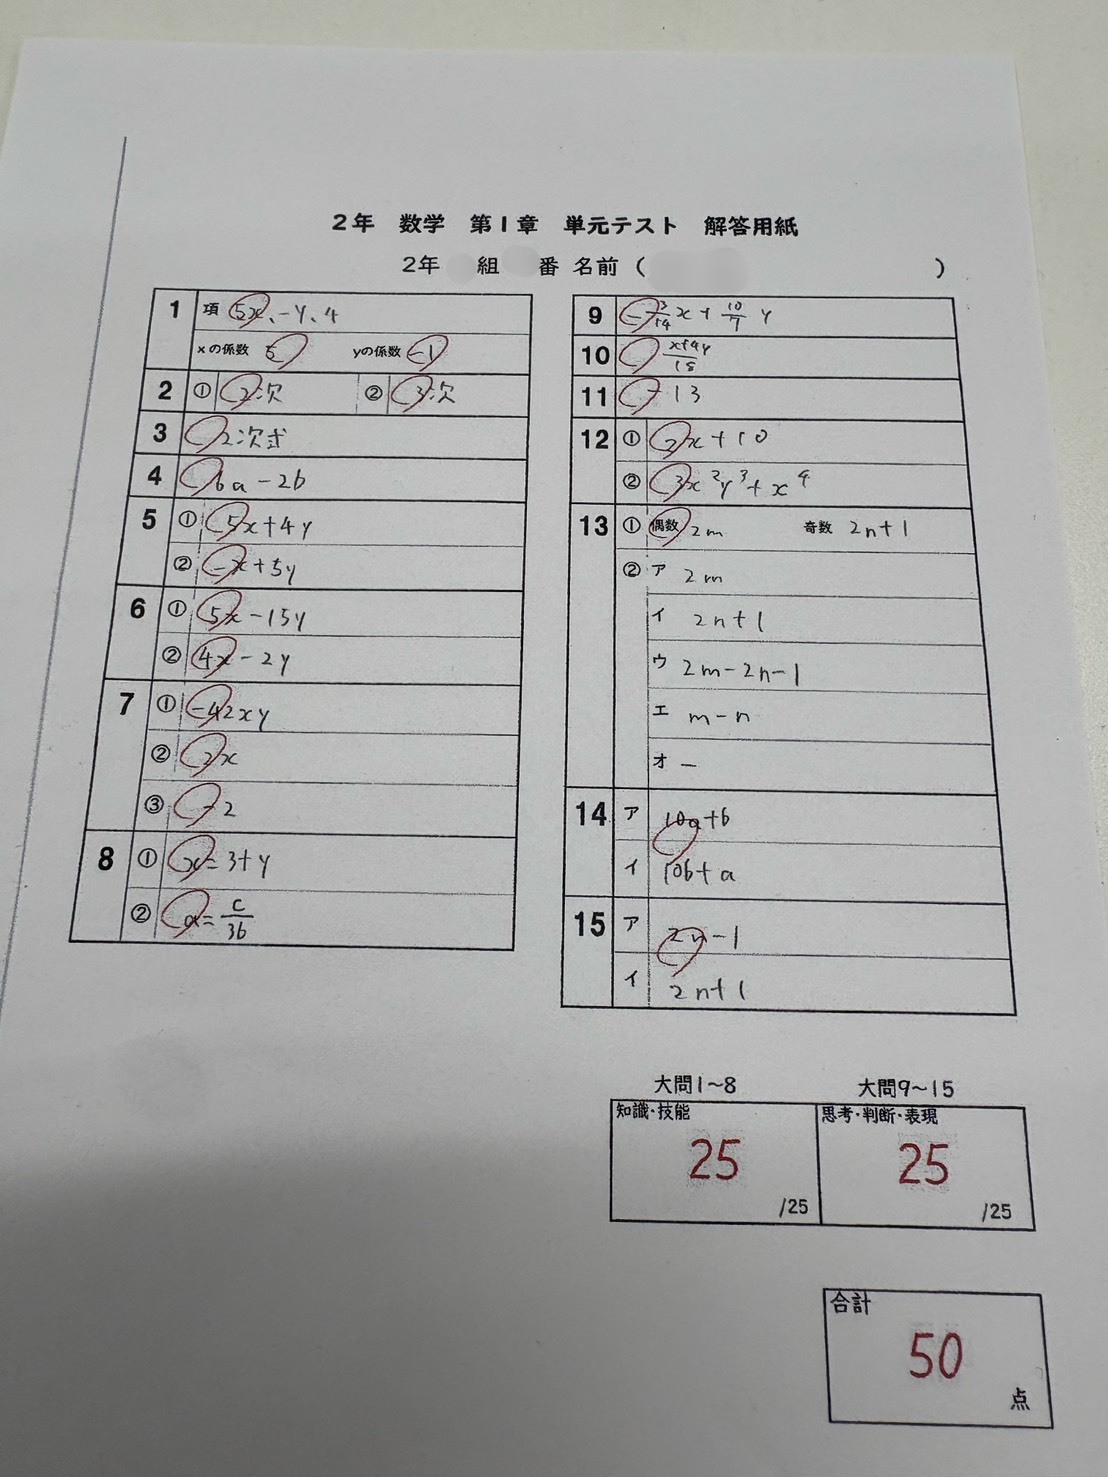 2年 数学 第1章 単元テスト 解答用紙
2年 組 番 名前 ( )
1 項 5x、-y、4
xの係数 5 yの係数 -1
2 ① 2次 ② 3次
3 2次式
4 6a-2b
5 ① 5x+4y
② -x+5y
6 ① 5x-15y
② 4x-2y
7 ① -42xy
② 2x
③ -2
8 ① x=3+y
② a=c/3b
9 -3/14x+10/7y
10 x+4y/15
11 -13
12 ① 2x+10
② 3x²y³+x⁴
13 ① 偶数 2m 奇数 2n+1
② ア 2m
イ 2n+1
ウ 2m-2n-1
エ m-n
オ -
14 ア 10a+b
イ 10b+a
15 ア 2n-1
イ 2n+1
大問1~8 大問9~15
知識・技能 思考・判断・表現
25 25
/25 /25
合計
50
点